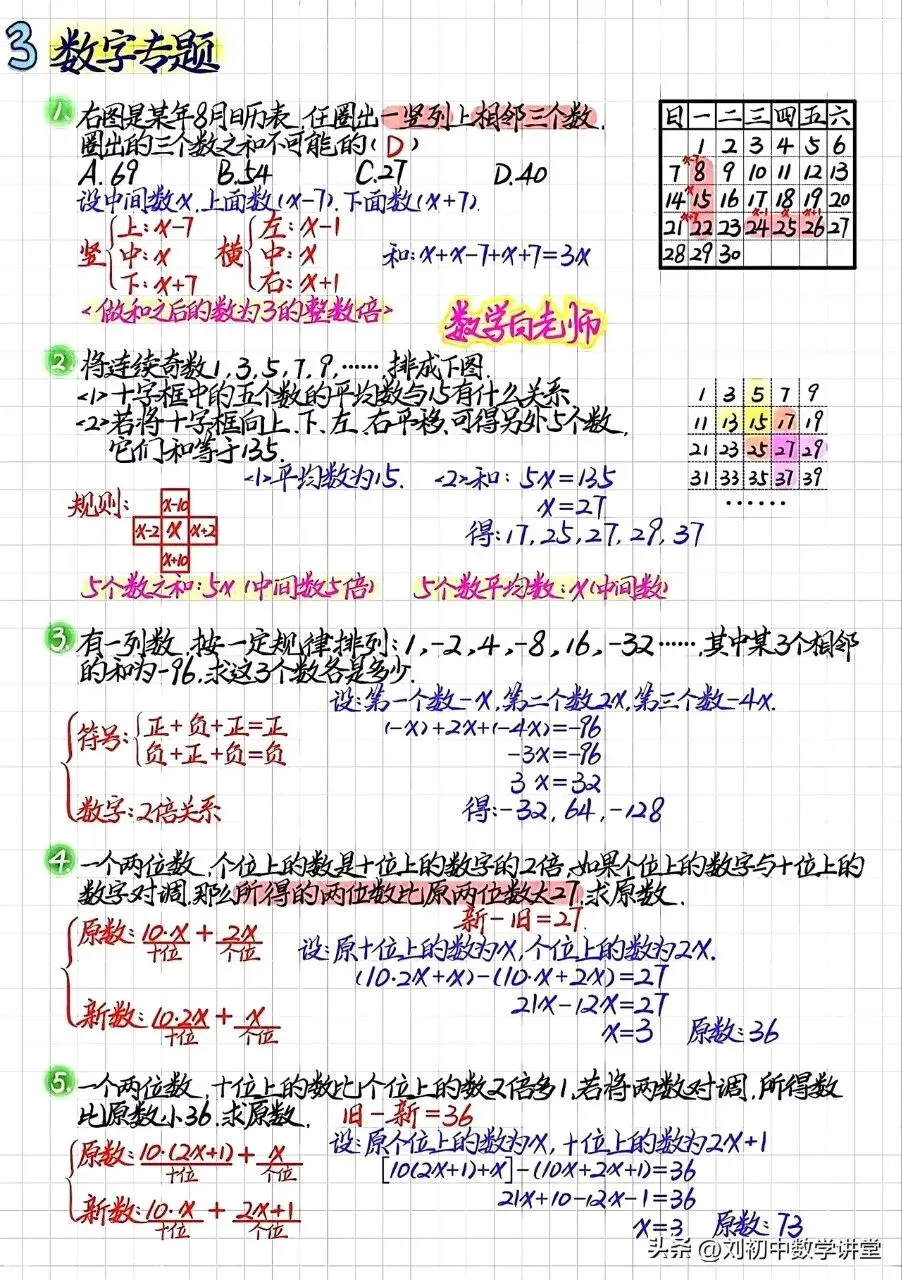 3 数字专题
1. 右图是某年8月日历表,任圈出一竖列上相邻三个数,
圈出的三个数之和不可能的( D )
A.69 B.54 C.27 D.40
设中间数x,上面数(x-7),下面数(x+7).
竖 上:x-7 中:x 下:x+7
横 左:x-1 中:x 右:x+1
和:x+x-7+x+7=3x
<做和之后的数为3的整数倍>
数学向老师
日 一 二 三 四 五 六
1 2 3 4 5 6
x-7
7 8 9 10 11 12 13
x
14 15 16 17 18 19 20
x+7 x-1 x x+1
21 22 23 24 25 26 27
28 29 30
2 将连续奇数1,3,5,7,9,……排成下图.
<1>十字框中的五个数的平均数与15有什么关系
<2>若将十字框向上、下、左、右平移,可得另外5个数,
它们和等于135.
<1>平均数为15. <2>和:5x=135
x=27
得:17,25,27,29,37
规则:
x-10
x-2 x x+2
x+10
1 3 5 7 9
11 13 15 17 19
21 23 25 27 29
31 33 35 37 39
……
5个数之和:5x(中间数5倍) 5个数平均数:x(中间数)
3 有一列数,按一定规律排列:1,-2,4,-8,16,-32……,其中某3个相邻
的和为-96,求这3个数各是多少.
设:第一个数-x,第二个数2x,第三个数-4x.
(-x)+2x+(-4x)=-96
-3x=-96
3x=32
得:-32,64,-128
符号: 正+负+正=正
负+正+负=负
数字:2倍关系
4 一个两位数,个位上的数是十位上的数字的2倍,如果个位上的数字与十位上的
数字对调,那么所得的两位数比原两位数大27,求原数.
新-旧=27
原数:10·x+2x
十位 个位
新数:10·2x+x
十位 个位
设:原十位上的数为x,个位上的数为2x.
(10·2x+x)-(10·x+2x)=27
21x-12x=27
x=3 原数:36
5. 一个两位数,十位上的数比个位上的数2倍多1,若将两数对调,所得数
比原数小36,求原数. 旧-新=36
原数:10·(2x+1)+x
十位 个位
新数:10·x+2x+1
十位 个位
设:原个位上的数为x,十位上的数为2x+1
[10(2x+1)+x]-(10x+2x+1)=36
21x+10-12x-1=36
x=3 原数:73
头条 @刘初中数学讲堂